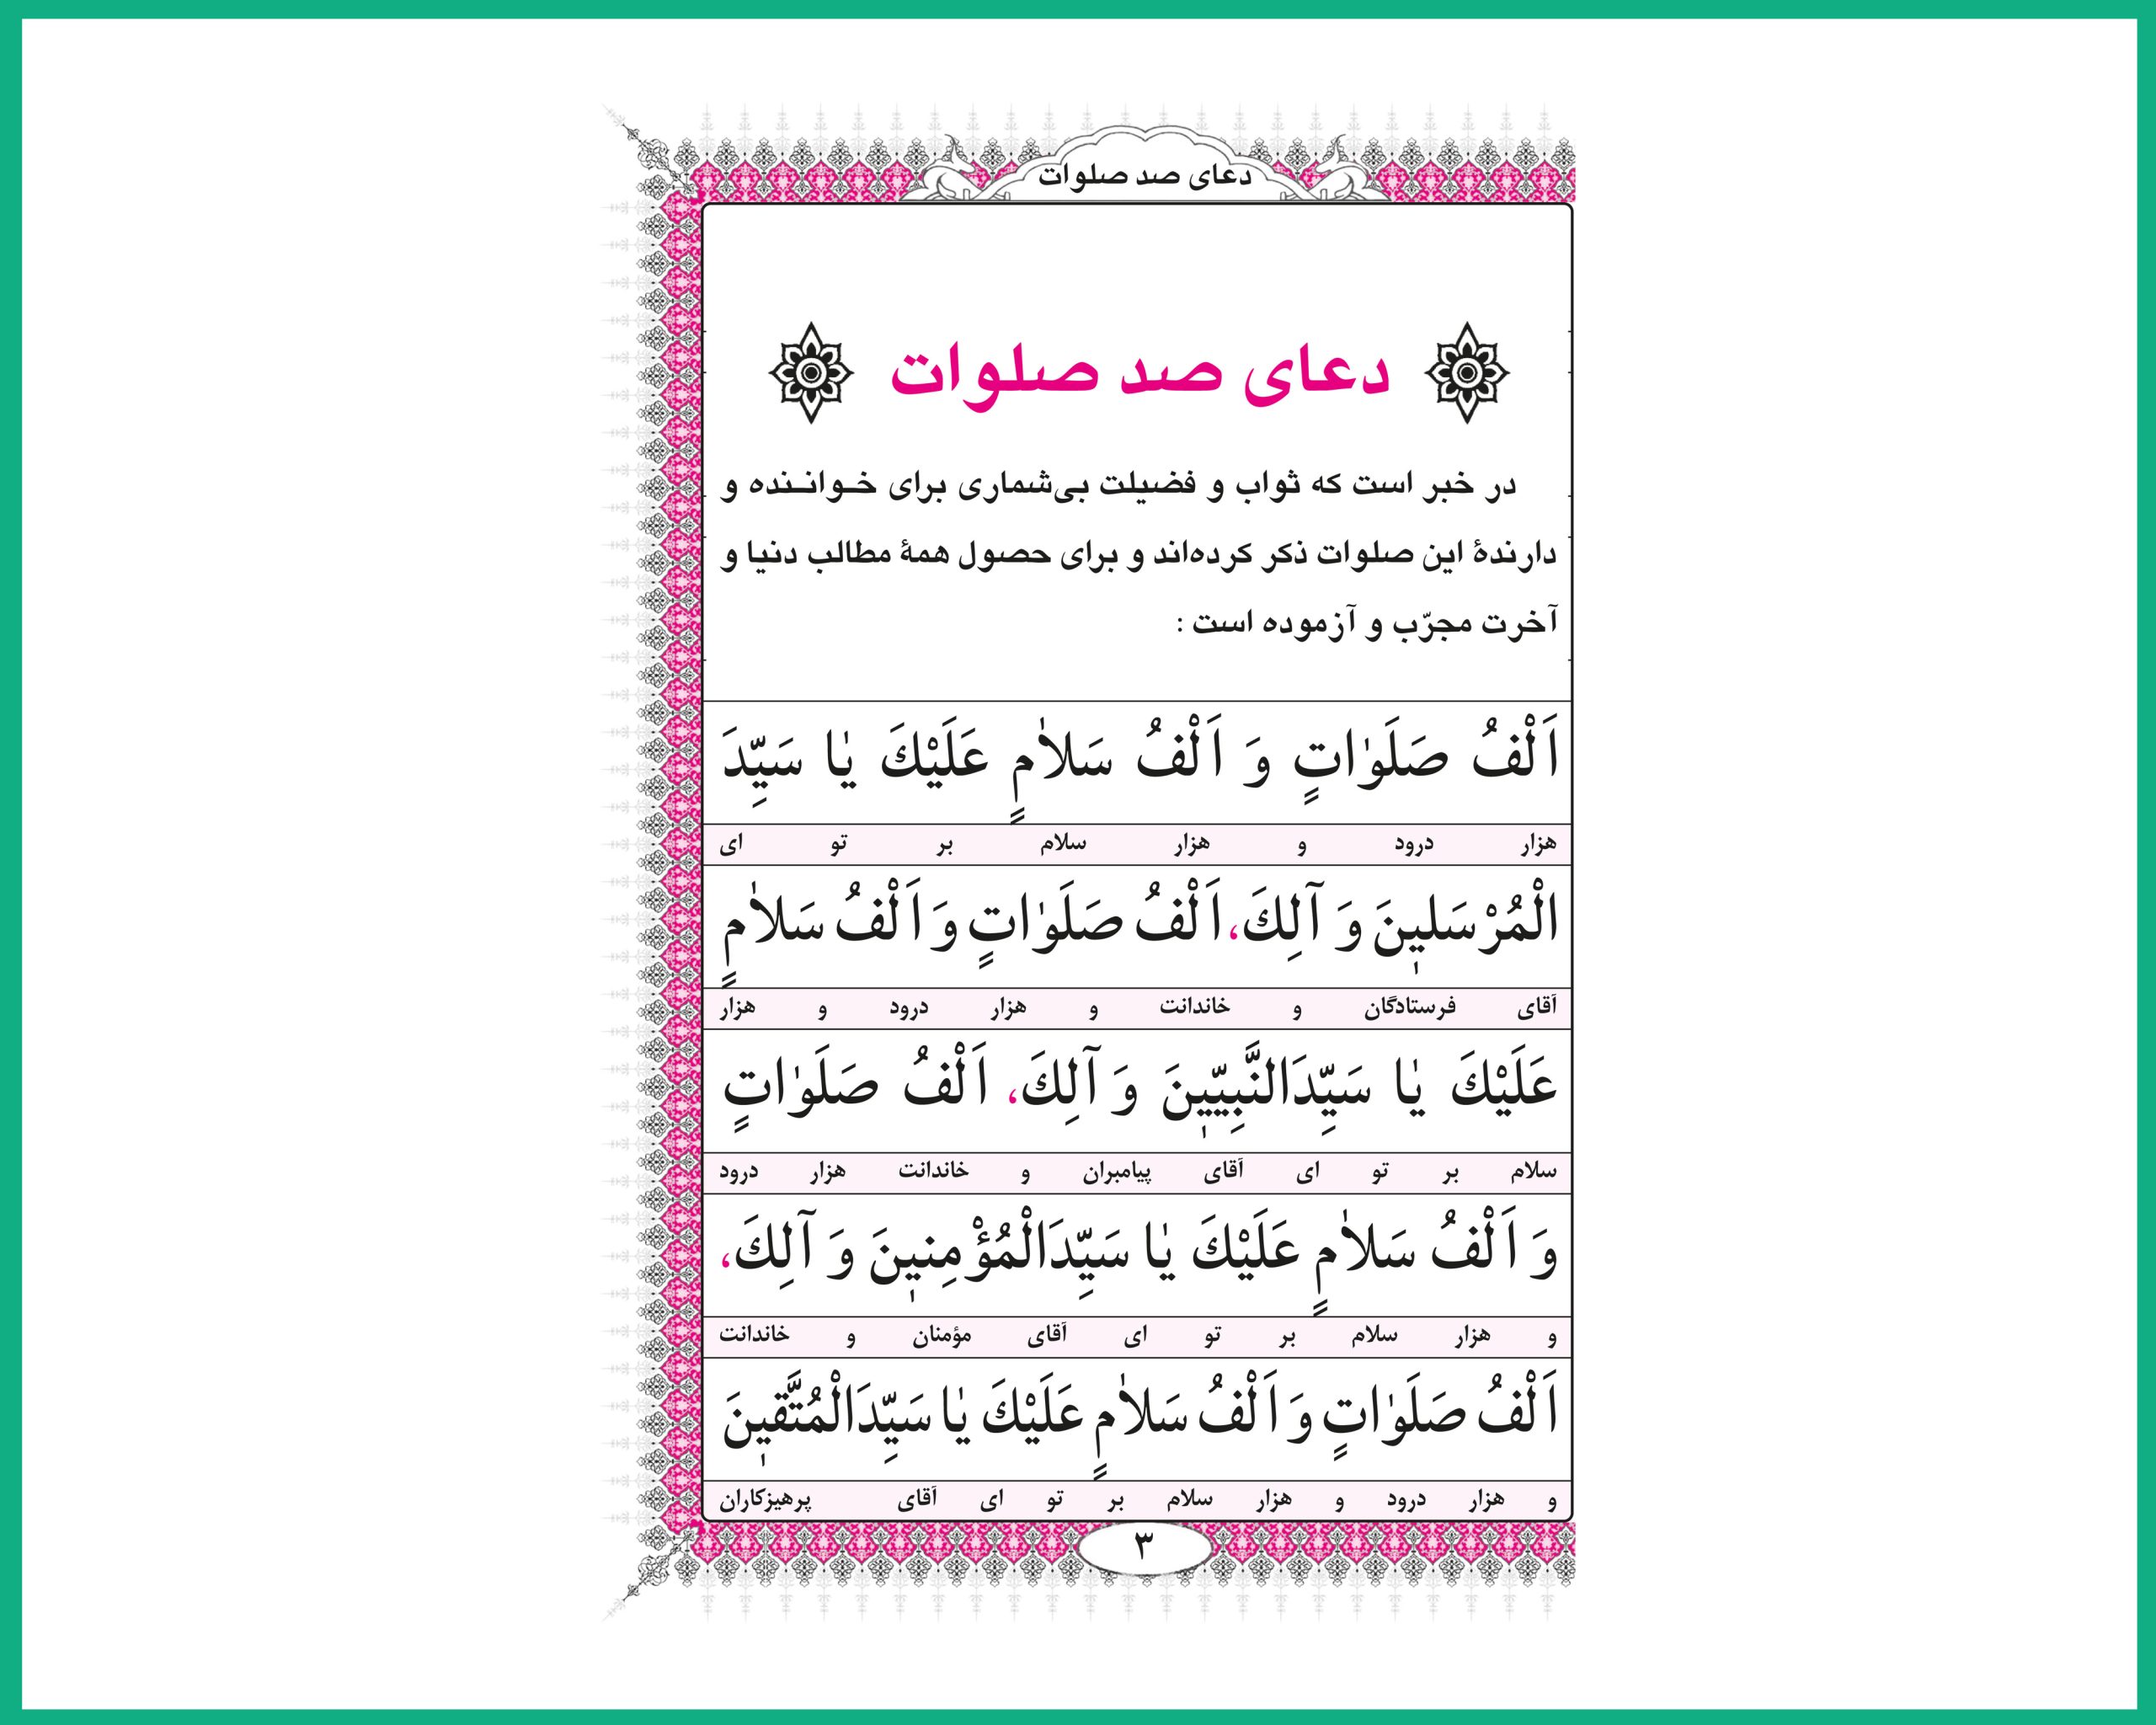 دعای صد صلوات
دعای صد صلوات
در خبر است که ثواب و فضیلت بی‌شماری برای خـوانـنده و
دارندهٔ این صلوات ذکر کرده‌اند و برای حصول همهٔ مطالب دنیا و
آخرت مجرّب و آزموده است :
اَلْفُ صَلَوٰاتٍ وَ اَلْفُ سَلاٰمٍ عَلَيْكَ يٰا سَيِّدَ
هزار درود و هزار سلام بر تو ای
الْمُرْسَلينَ وَ آلِكَ، اَلْفُ صَلَوٰاتٍ وَ اَلْفُ سَلاٰمٍ
آقای فرستادگان و خاندانت و هزار درود و هزار
عَلَيْكَ يٰا سَيِّدَالنَّبِيّٖينَ وَ آلِكَ، اَلْفُ صَلَوٰاتٍ
سلام بر تو ای آقای پیامبران و خاندانت هزار درود
وَ اَلْفُ سَلاٰمٍ عَلَيْكَ يٰا سَيِّدَالْمُؤْمِنينَ وَ آلِكَ،
و هزار سلام بر تو ای آقای مؤمنان و خاندانت
اَلْفُ صَلَوٰاتٍ وَ اَلْفُ سَلاٰمٍ عَلَيْكَ يٰا سَيِّدَالْمُتَّقينَ
و هزار درود و هزار سلام بر تو ای آقای پرهیزکاران
۳